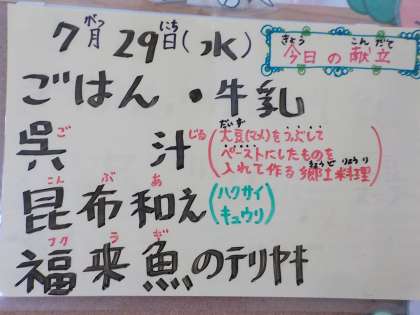 7月29日(水)
今日の献立
ごはん・牛乳
呉汁(大豆(マメ)をつぶして
ペーストにしたものを
入れて作る郷土料理)
昆布和え(ハクサイ
キュウリ)
福来魚のテリヤキ